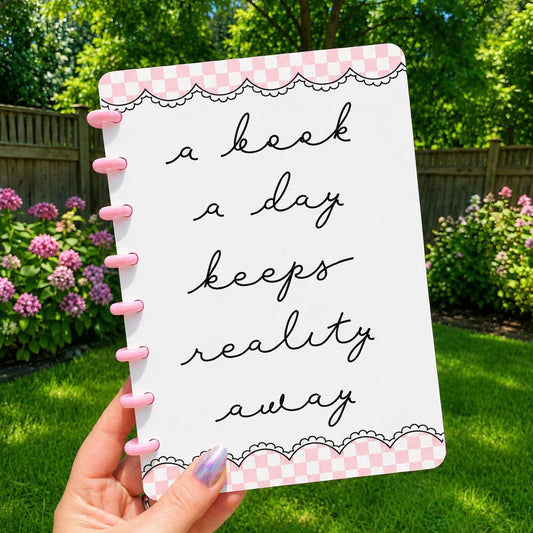 a book
a day
keeps
reality
away